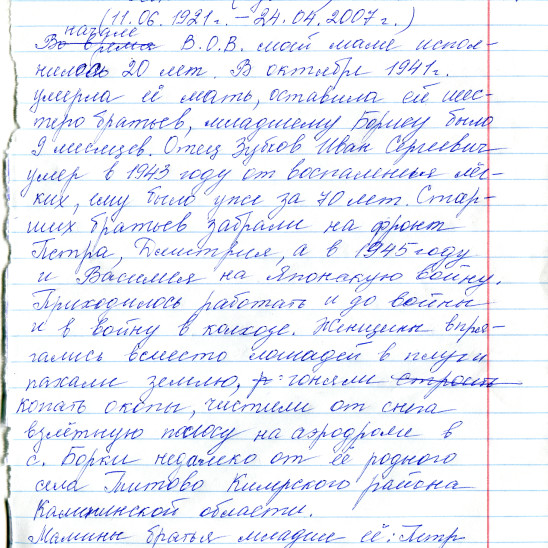 (11.06.1921г. – 24.04.2007г.)
начале
Во время В.О.В. моей маме испол-
нилось 20 лет. В октябре 1941г.
умерла её мать, оставила ей шес-
теро братьев, младшему Борису было
9 месяцев. Отец Зубов Иван Сергеевич
умер в 1943 году от воспаления лёг-
ких, ему было уже за 70 лет. Стар-
ших братьев забрали на фронт
Петра, Дмитрия, а в 1945 году
и Василия на Японскую войну.
Приходилось работать и до войны
и в войну в колхозе. Женщины впря-
гались вместо лошадей в плуг и
пахали землю, р гоняли строить
копать окопы, чистили от снега
взлётную полосу на аэродроме в
с. Борки недалеко от её родного
села Титово Кимрского района
Калининской области.
Мамины братья младше её: Пётр